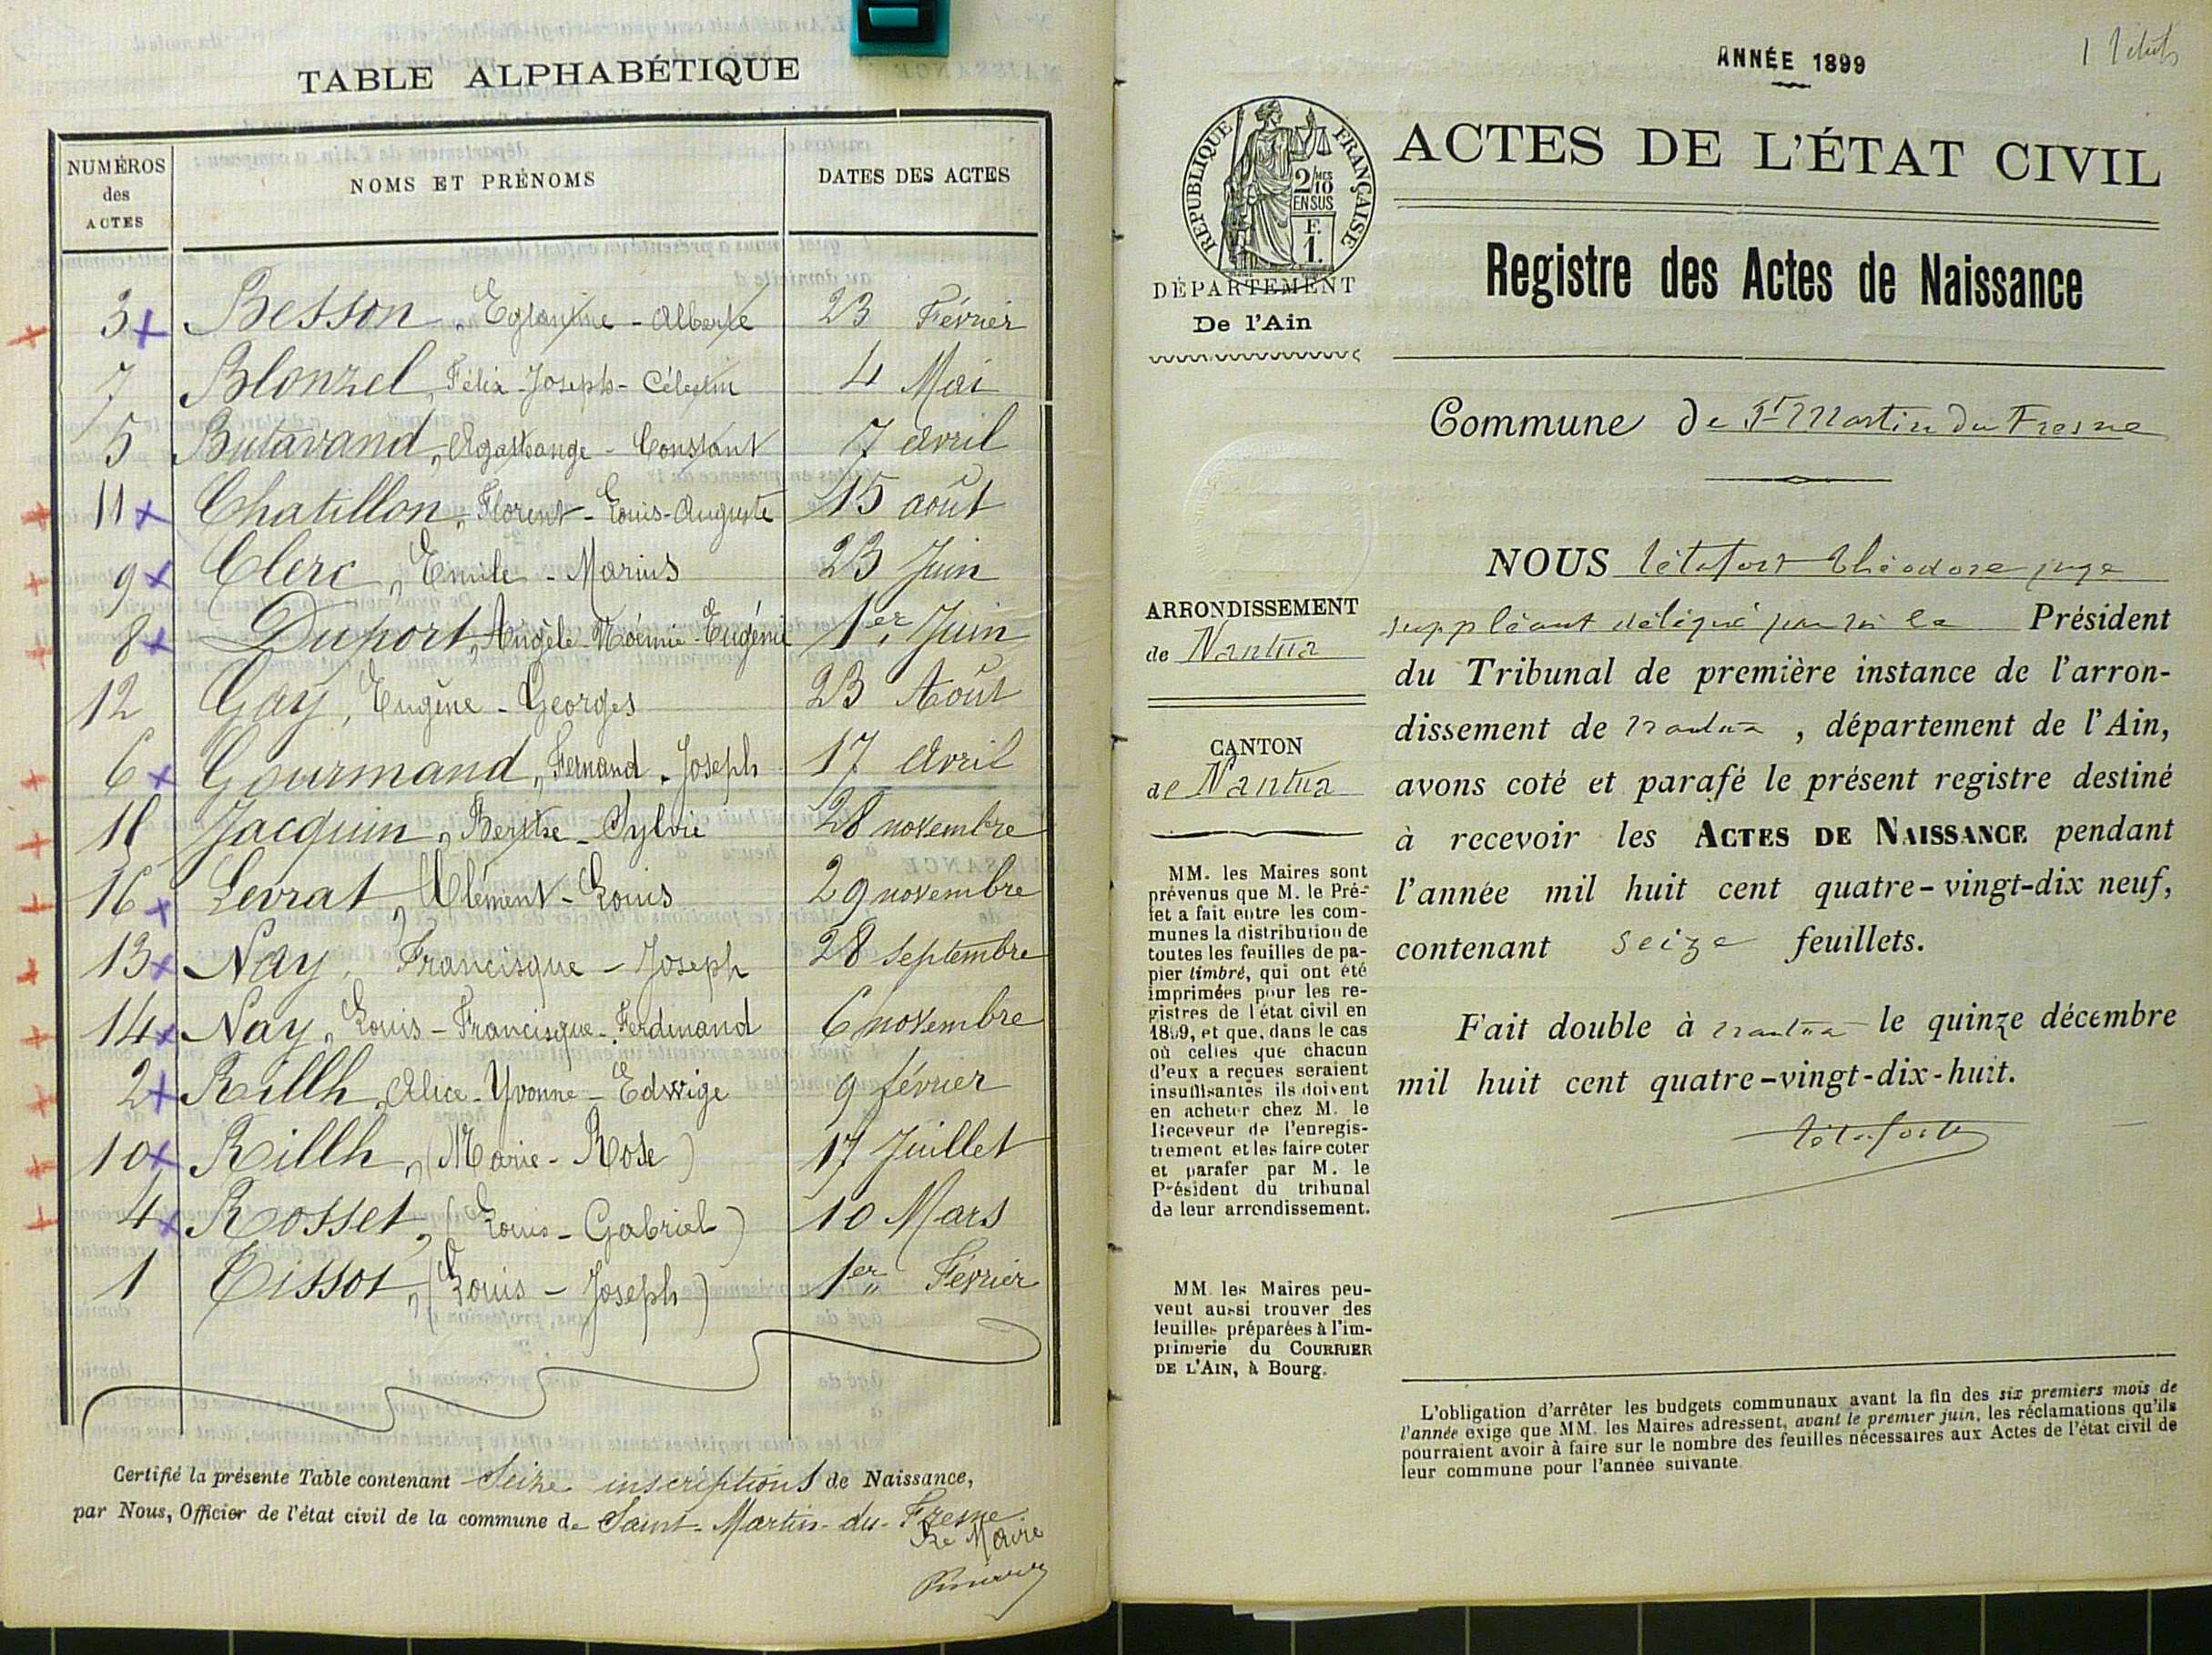 TABLE ALPHABÉTIQUE
NUMÉROS des ACTES
NOMS ET PRÉNOMS
DATES DES ACTES
3 Besson, Eglantine - Alberte 23 Février
7 Blonzel, Félix - Joseph - Célestin 4 Mai
5 Butavand, Agathange - Constant 7 avril
11 Chatillon, Florent - Louis - Auguste 15 août
9 Clerc, Emile - Marius 23 Juin
8 Duport, Angèle - Noémie - Eugénie 1er Juin
12 Gay, Eugène - Georges 23 Août
6 Gourmand, Fernand - Joseph 17 Avril
Jacquin, Berthe - Sylvie 28 novembre
16 Levrat, Clément - Louis 29 novembre
13 Nay, Francisque - Joseph 28 Septembre
14 Nay, Louis - Francisque - Ferdinand 6 novembre
2 Rillh, Alice - Yvonne - Edwige 9 février
10 Rillh, (Marie - Rose) 17 Juillet
4 Rosset, (Louis - Gabriel) 10 Mars
1 Tissot, (Louis - Joseph) 1er Février
Certifié la présente Table contenant Seize inscriptions de Naissance,
par Nous, Officier de l'état civil de la commune de Saint-Martin-du-Fresne.
Le Maire
ANNÉE 1899
RÉPUBLIQUE FRANÇAISE
2/10 MES
EN SUS
F.
1.
ACTES DE L'ÉTAT CIVIL
Registre des Actes de Naissance
DÉPARTEMENT
De l'Ain
Commune de St Martin du Fresne
ARRONDISSEMENT
de Nantua
CANTON
de Nantua
MM. les Maires sont
prévenus que M. le Pré-
fet a fait entre les com-
munes la distribution de
toutes les feuilles de pa-
pier timbré, qui ont été
imprimées pour les re-
gistres de l'état civil en
1899, et que, dans le cas
où celles que chacun
d'eux a reçues seraient
insuffisantes ils doivent
en acheter chez M. le
Receveur de l'enregis-
trement et les faire coter
et parafer par M. le
Président du tribunal
de leur arrondissement.
MM. les Maires peu-
vent aussi trouver des
feuilles préparées à l'im-
primerie du COURRIER
DE L'AIN, à Bourg.
NOUS Tétafort Théodore juge
suppléant délégué par le Président
du Tribunal de première instance de l'arron-
dissement de Nantua, département de l'Ain,
avons coté et parafé le présent registre destiné
à recevoir les ACTES DE NAISSANCE pendant
l'année mil huit cent quatre-vingt-dix neuf,
contenant seize feuillets.
Fait double à Nantua le quinze décembre
mil huit cent quatre-vingt-dix-huit.
Tétafort
L'obligation d'arrêter les budgets communaux avant la fin des six premiers mois de
l'année exige que MM. les Maires adressent, avant le premier juin, les réclamations qu'ils
pourraient avoir à faire sur le nombre des feuilles nécessaires aux Actes de l'état civil de
leur commune pour l'année suivante.